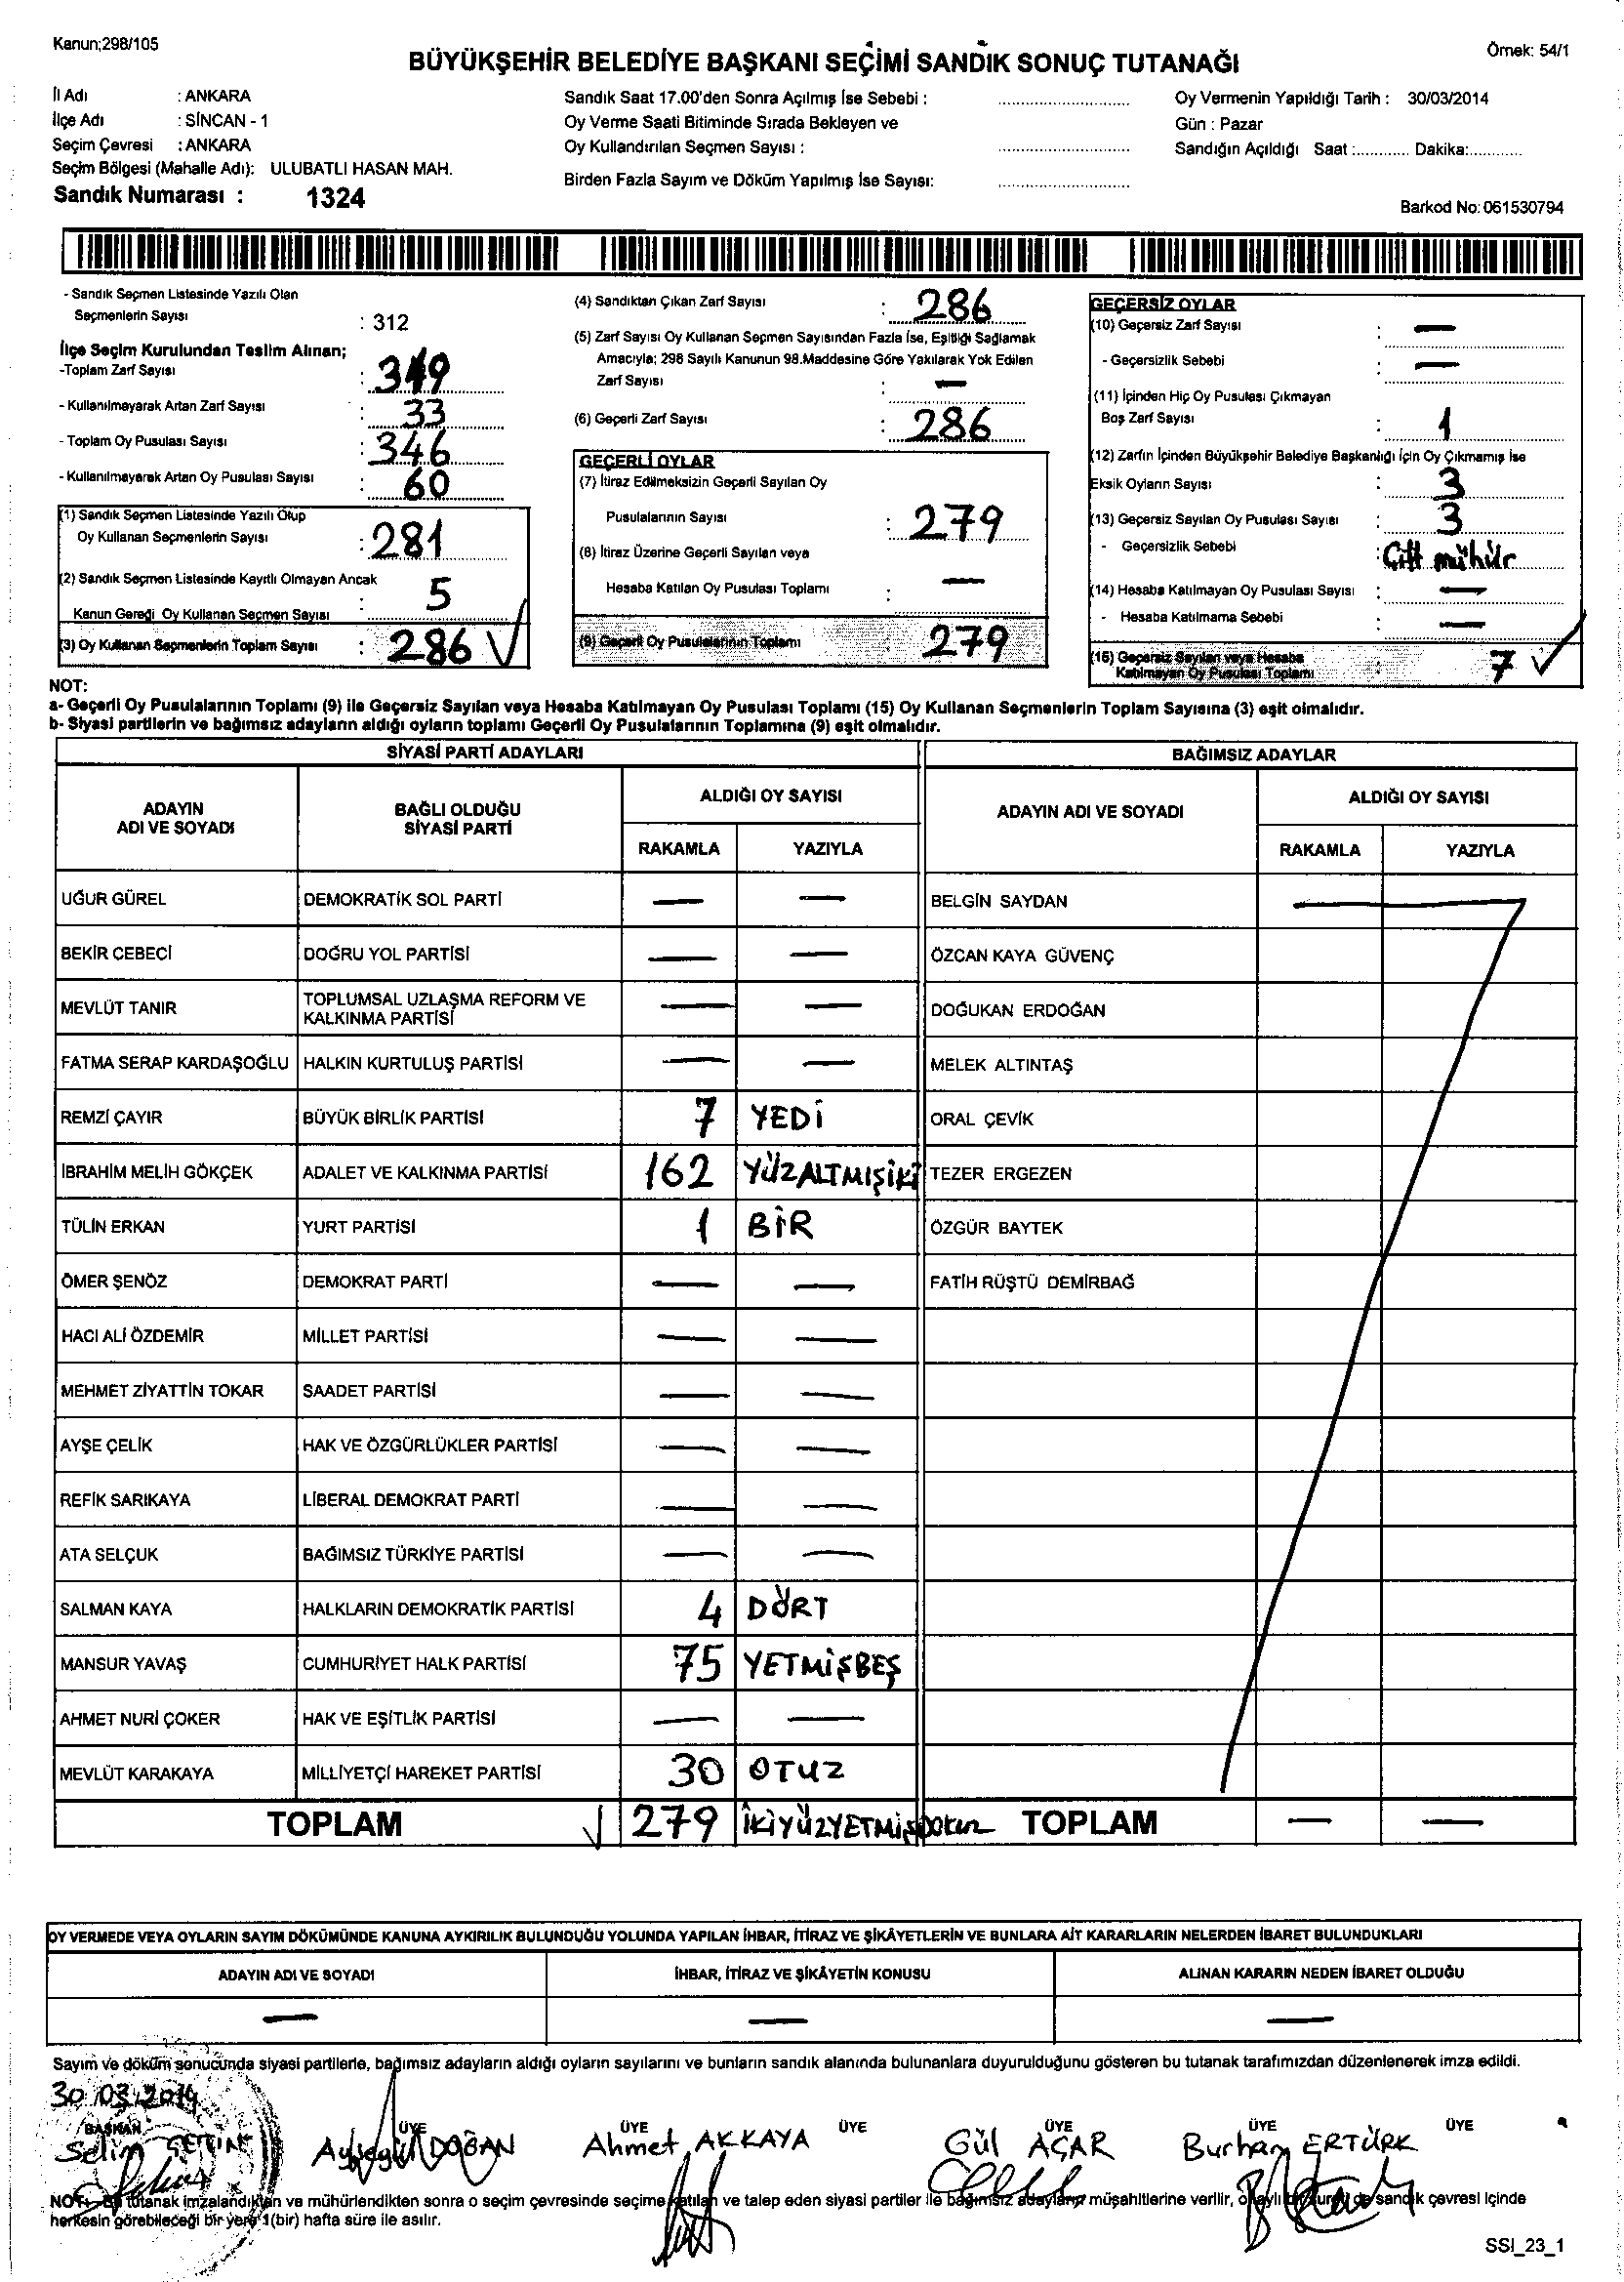 Kanun;298/105
Örnek: 54/1
BÜYÜKŞEHİR BELEDİYE BAŞKANI SEÇİMİ SANDIK SONUÇ TUTANAĞI
İl Adı : ANKARA
İlçe Adı : SİNCAN - 1
Seçim Çevresi : ANKARA
Seçim Bölgesi (Mahalle Adı): ULUBATLI HASAN MAH.
Sandık Numarası : 1324
Sandık Saat 17.00'den Sonra Açılmış İse Sebebi :
Oy Verme Saati Bitiminde Sırada Bekleyen ve
Oy Kullandırılan Seçmen Sayısı :
Birden Fazla Sayım ve Döküm Yapılmış İse Sayısı:
Oy Vermenin Yapıldığı Tarih : 30/03/2014
Gün : Pazar
Sandığın Açıldığı Saat :............ Dakika:............
Barkod No: 061530794
- Sandık Seçmen Listesinde Yazılı Olan
Seçmenlerin Sayısı : 312
İlçe Seçim Kurulundan Teslim Alınan;
-Toplam Zarf Sayısı : 319
- Kullanılmayarak Artan Zarf Sayısı : 33
- Toplam Oy Pusulası Sayısı : 346
- Kullanılmayarak Artan Oy Pusulası Sayısı : 60
(1) Sandık Seçmen Listesinde Yazılı Olup
Oy Kullanan Seçmenlerin Sayısı : 281
(2) Sandık Seçmen Listesinde Kayıtlı Olmayan Ancak
Kanun Gereği Oy Kullanan Seçmen Sayısı : 5
(3) Oy Kullanan Seçmenlerin Toplam Sayısı : 286
(4) Sandıktan Çıkan Zarf Sayısı : 286
(5) Zarf Sayısı Oy Kullanan Seçmen Sayısından Fazla İse, Eşitliği Sağlamak
Amacıyla; 298 Sayılı Kanunun 98.Maddesine Göre Yakılarak Yok Edilen
Zarf Sayısı : —
(6) Geçerli Zarf Sayısı : 286
GEÇERLİ OYLAR
(7) İtiraz Edilmeksizin Geçerli Sayılan Oy
Pusulalarının Sayısı : 279
(8) İtiraz Üzerine Geçerli Sayılan veya
Hesaba Katılan Oy Pusulası Toplamı : —
(9) Geçerli Oy Pusulalarının Toplamı : 279
GEÇERSİZ OYLAR
(10) Geçersiz Zarf Sayısı : —
- Geçersizlik Sebebi : —
(11) İçinden Hiç Oy Pusulası Çıkmayan
Boş Zarf Sayısı : 1
(12) Zarfın İçinden Büyükşehir Belediye Başkanlığı İçin Oy Çıkmamış İse
Eksik Oyların Sayısı : 3
(13) Geçersiz Sayılan Oy Pusulası Sayısı : 3
- Geçersizlik Sebebi : Çift mühür
(14) Hesaba Katılmayan Oy Pusulası Sayısı : —
- Hesaba Katılmama Sebebi : —
(15) Geçersiz Sayılan veya Hesaba
Katılmayan Oy Pusulası Toplamı : 7
NOT:
a- Geçerli Oy Pusulalarının Toplamı (9) ile Geçersiz Sayılan veya Hesaba Katılmayan Oy Pusulası Toplamı (15) Oy Kullanan Seçmenlerin Toplam Sayısına (3) eşit olmalıdır.
b- Siyasi partilerin ve bağımsız adayların aldığı oyların toplamı Geçerli Oy Pusulalarının Toplamına (9) eşit olmalıdır.
SİYASİ PARTİ ADAYLARI
BAĞIMSIZ ADAYLAR
ADAYIN ADI VE SOYADI
BAĞLI OLDUĞU SİYASİ PARTİ
ALDIĞI OY SAYISI
RAKAMLA YAZIYLA
ADAYIN ADI VE SOYADI
ALDIĞI OY SAYISI
RAKAMLA YAZIYLA
UĞUR GÜREL DEMOKRATİK SOL PARTİ — — BELGİN SAYDAN
BEKİR CEBECİ DOĞRU YOL PARTİSİ — — ÖZCAN KAYA GÜVENÇ
MEVLÜT TANIR TOPLUMSAL UZLAŞMA REFORM VE KALKINMA PARTİSİ — — DOĞUKAN ERDOĞAN
FATMA SERAP KARDAŞOĞLU HALKIN KURTULUŞ PARTİSİ — — MELEK ALTINTAŞ
REMZİ ÇAYIR BÜYÜK BİRLİK PARTİSİ 7 YEDİ ORAL ÇEVİK
İBRAHİM MELİH GÖKÇEK ADALET VE KALKINMA PARTİSİ 162 YÜZALTMIŞİKİ TEZER ERGEZEN
TÜLİN ERKAN YURT PARTİSİ 1 BİR ÖZGÜR BAYTEK
ÖMER ŞENÖZ DEMOKRAT PARTİ — — FATİH RÜŞTÜ DEMİRBAĞ
HACI ALİ ÖZDEMİR MİLLET PARTİSİ — —
MEHMET ZİYATTİN TOKAR SAADET PARTİSİ — —
AYŞE ÇELİK HAK VE ÖZGÜRLÜKLER PARTİSİ — —
REFİK SARIKAYA LİBERAL DEMOKRAT PARTİ — —
ATA SELÇUK BAĞIMSIZ TÜRKİYE PARTİSİ — —
SALMAN KAYA HALKLARIN DEMOKRATİK PARTİSİ 4 DÖRT
MANSUR YAVAŞ CUMHURİYET HALK PARTİSİ 75 YETMİŞBEŞ
AHMET NURİ ÇOKER HAK VE EŞİTLİK PARTİSİ — —
MEVLÜT KARAKAYA MİLLİYETÇİ HAREKET PARTİSİ 30 OTUZ
TOPLAM 279 İKİYÜZYETMİŞDOKUZ TOPLAM — —
OY VERMEDE VEYA OYLARIN SAYIM DÖKÜMÜNDE KANUNA AYKIRILIK BULUNDUĞU YOLUNDA YAPILAN İHBAR, İTİRAZ VE ŞİKÂYETLERİN VE BUNLARA AİT KARARLARIN NELERDEN İBARET BULUNDUKLARI
ADAYIN ADI VE SOYADI İHBAR, İTİRAZ VE ŞİKÂYETİN KONUSU ALINAN KARARIN NEDEN İBARET OLDUĞU
— — —
Sayım ve döküm sonucunda siyasi partilerle, bağımsız adayların aldığı oyların sayılarını ve bunların sandık alanında bulunanlara duyurulduğunu gösteren bu tutanak tarafımızdan düzenlenerek imza edildi.
30.03.2014
BAŞKAN ÜYE ÜYE ÜYE ÜYE ÜYE ÜYE
Selim ÇETİN Ayşegül DOĞAN Ahmet AKKAYA Gül AÇAR Burhan ERTÜRK
NOT:- Bu tutanak imzalandıktan ve mühürlendikten sonra o seçim çevresinde seçime katılan ve talep eden siyasi partiler ile bağımsız adayların müşahitlerine verilir, onaylı bir sureti de sandık çevresi içinde
herkesin görebileceği bir yere 1(bir) hafta süre ile asılır.
SSI_23_1